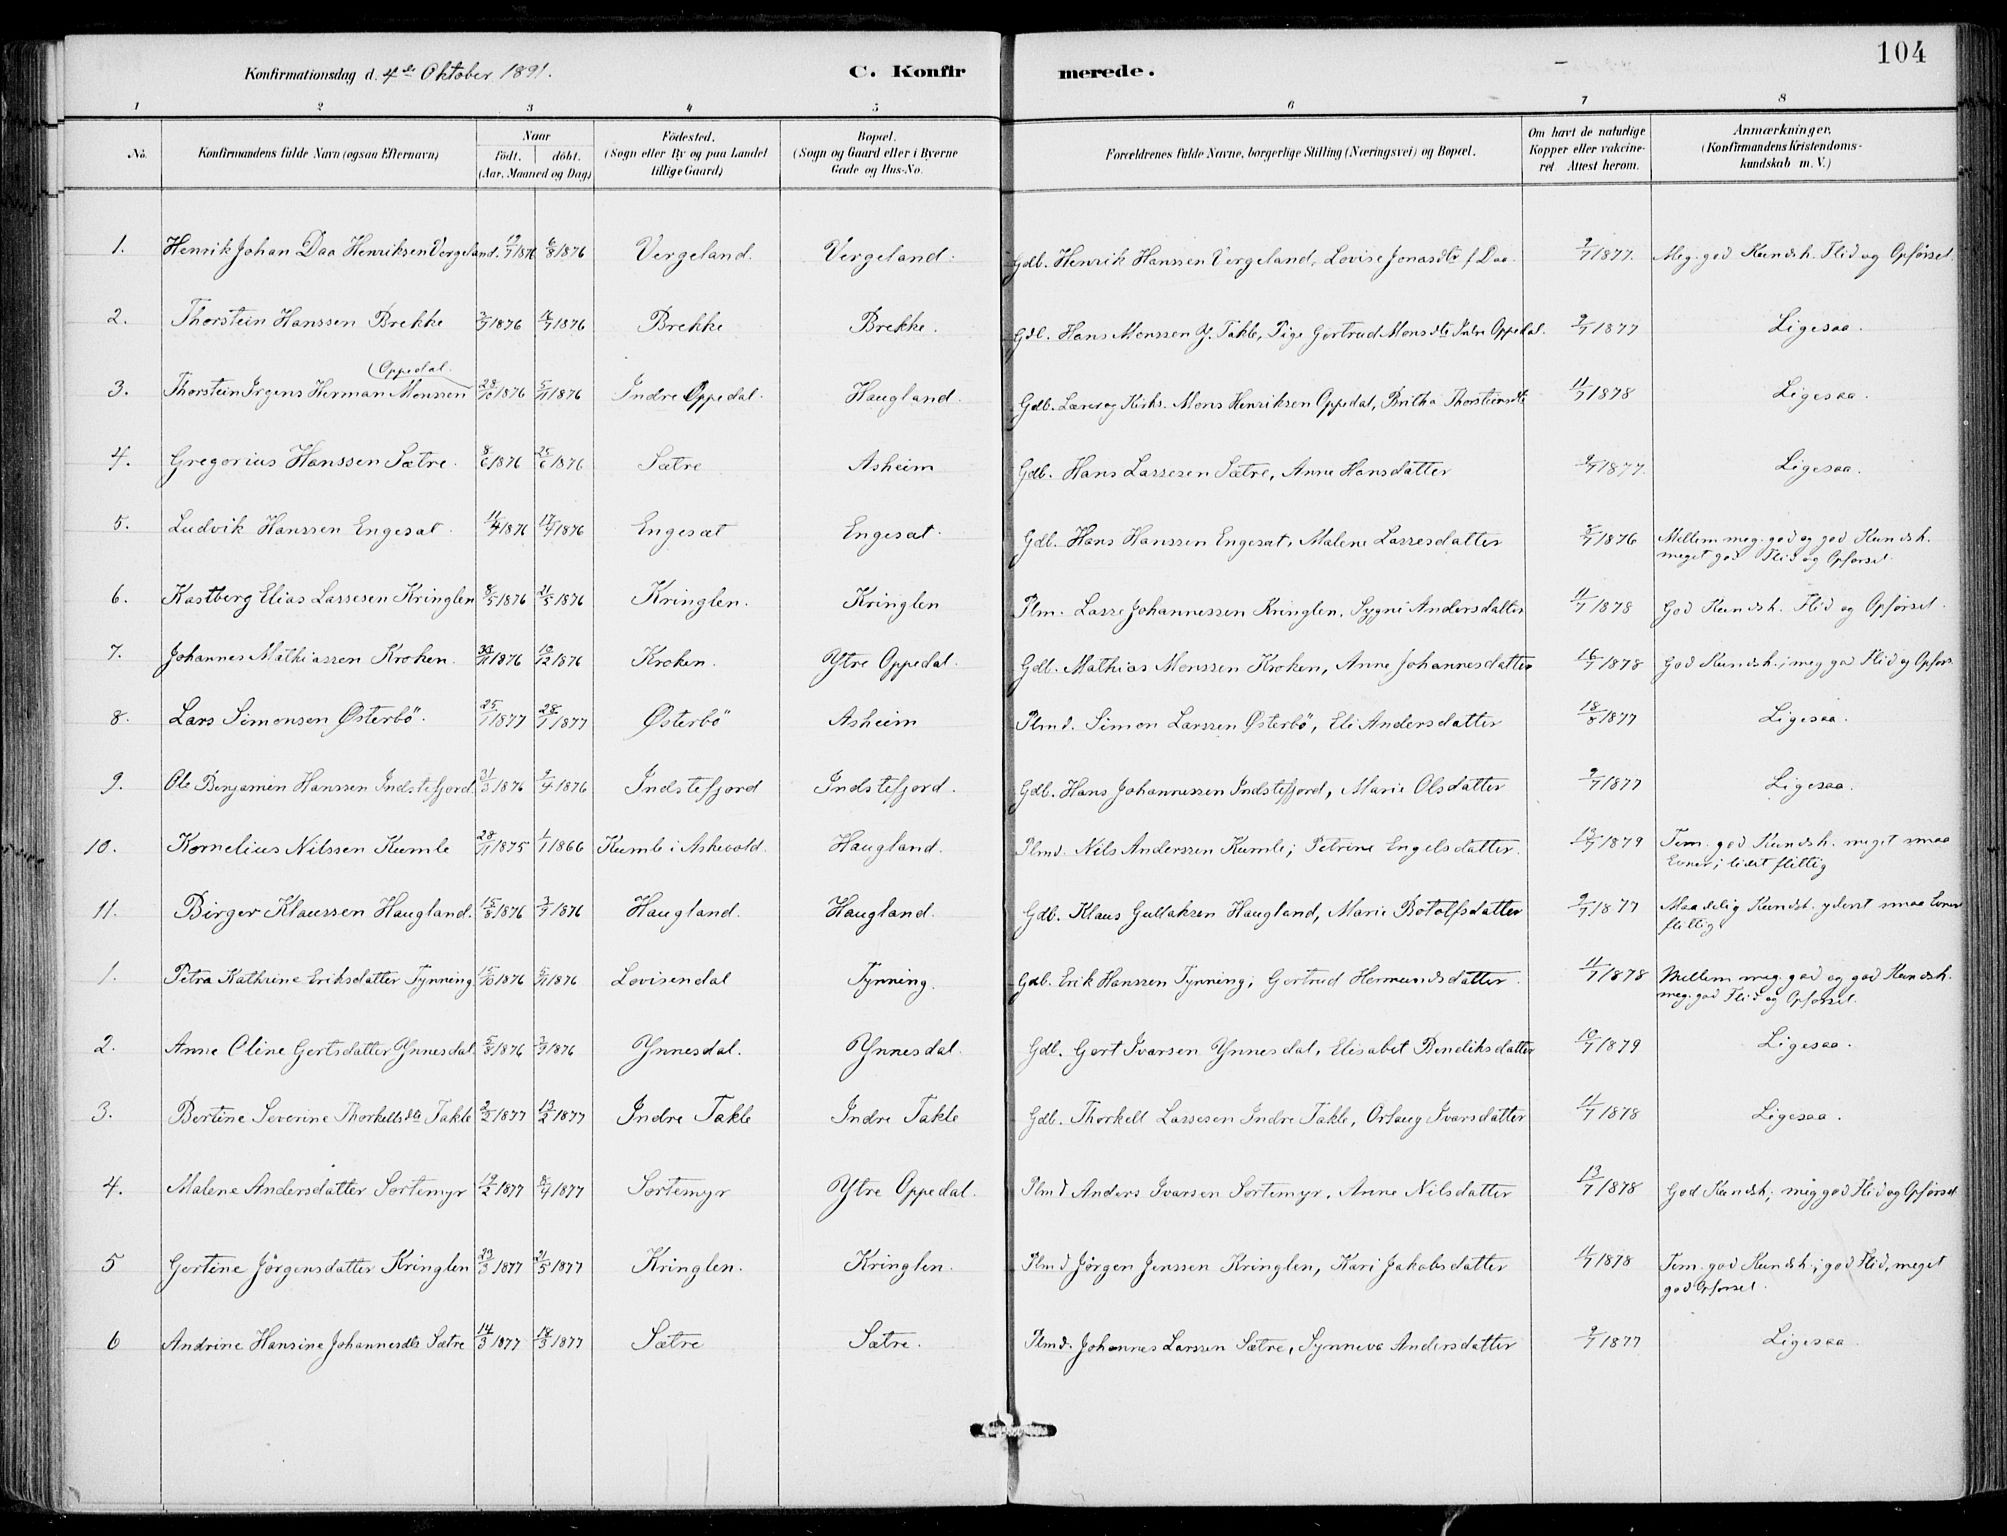 104
Konfirmationsdag d. 4de Oktober 1891. C. Konfirmerede.
1 2 3 4 5 6 7 8
No. Konfirmandens fulde Navn (ogsaa Efternavn) Naar födt. döbt. (Aar, Maaned og Dag) Födested. (Sogn eller By og paa Landet tillige Gaard) Bopæl. (Sogn og Gaard eller i Byerne Gade og Hus-No. Forældrenes fulde Navne, borgerlige Stilling (Næringsvei) og Bopæl. Om havt de naturlige Kopper eller vakcineret. Attest herom. Anmærkninger. (Konfirmandens Kristendomskundskab m. V.)
1. Henrik Johan Daa Henriksen Vergeland. 19/7 1876 6/8 1876 Vergeland. Vergeland. Gdb. Henrik Hanssen Vergeland, Lovise Jonasdtr f. Daa. 9/7 1877. Meg. god Kundsk. Flid og Opførsel.
2. Thorstein Hanssen Brekke 2/7 1876 16/7 1876 Brekke Brekke. Gdb. Hans Monssen Y. Takle, Pige Gertrud Monsdtr Indre Oppedal. 9/7 1877 Ligesaa.
Oppedal.
3. Thorstein Irgens Herman Monssen 28/10 1876 5/11 1876 Indre Oppedal. Haugland. Gdb. Lærer og Kirks. Mons Henriksen Oppedal, Britha Thorsteinsdtr 11/7 1878 Ligesaa.
4. Gregorius Hanssen Sætre. 8/6 1876 25/6 1876 Sætre Asheim Gdb. Hans Lassesen Sætre, Anne Hansdatter 9/7 1877. Ligesaa.
5. Ludvik Hanssen Engesæt. 11/4 1876 17/4 1876 Engesæt Engesæt. Gdb. Hans Hanssen Engesæt, Malene Lassesdatter 8/7 1876 Mellem meg. god og god Kundsk.
meget god Flid og Opførsel.
6. Kastberg Elias Lassesen Kringlen 8/5 1876 21/5 1876 Kringlen. Kringlen Plm. Lasse Johannessen Kringlen, Sygni Andersdatter 11/7 1878 God Kundsk. Flid og Opførsel.
7. Johannes Mathiassen Kroken. 30/11 1876 10/12 1876 Kroken. Ytre Oppedal. Gdb. Mathias Monssen Kroken, Anne Johannesdatter 16/7 1878 God Kundsk.; meg. god Flid og Opførs.
8. Lars Simonsen Østerbö. 25/1 1877 28/1 1877 Østerbö Asheim Plmd. Simon Larssen Østerbö, Eli Andersdatter 18/8 1877 Ligesaa.
9. Ole Benjamin Hanssen Indstefjord. 31/3 1876 9/4 1876 Indstefjord Indstefjord. Gdb. Hans Johannessen Indstefjord, Marie Olsdatter 9/7 1877 Ligesaa.
10. Kornelius Nilssen Kumle 28/11 1875 1/1 1866 Kumle i Askevold. Haugland. Plmd. Nils Anderssen Kumle; Petrine Engelsdatter. 12/7 1879 Tem. god Kundsk. meget smaa
Evner; lidet flittig
11. Birger Klaussen Haugland. 15/8 1876 3/9 1876 Haugland. Haugland. Gdb. Klaus Gullaksen Haugland, Marie Botolfsdatter 9/7 1877 Maadelig Kundsk. yderst smaa Evner
flittig
1. Petra Kathrine Eriksdatter Tynning 15/10 1876 5/11 1876 Lovisendal Tynning. Gdb. Erik Hanssen Tynning; Gertrud Hermundsdatter. 11/7 1878 Mellem meg. god og god Kundsk.
meg. god Flid og Opførsel.
2. Anne Oline Gertsdatter Ynnesdal 5/8 1876 3/9 1876 Ynnesdal. Ynnesdal. Gdb. Gert Ivarsen Ynnesdal, Elisabet Bendiksdatter 10/7 1879 Ligesaa.
3. Bertine Severine Thorkellsdtr Takle 2/2 1877 13/2 1877 Indre Takle Indre Takle Gdb. Thorkell Lassesen Indre Takle, Orlaug Ivarsdatter 11/7 1878 Ligesaa.
4. Malene Andersdatter Sortemyr 19/2 1877 8/4 1877 Sortemyr Ytre Oppedal. Plmd Anders Ivarsen Sortemyr, Anne Nilsdatter 13/7 1878 God Kundsk; meg god Flid og Opførsel
5 Gertine Jörgensdatter Kringlen 23/3 1877 21/5 1877 Kringlen. Kringlen. Plmd Jörgen Jenssen Kringlen, Kari Jakobsdatter 11/7 1878 Tem. god Kundsk.; god Flid, meget
god Opførsel.
6 Andrine Hansine Johannesdtr Sætre 14/3 1877 18/3 1877 Sætre Sætre. Plmd. Johannes Larssen Sætre, Synneva Andersdatter 9/7 1877 Ligesaa.